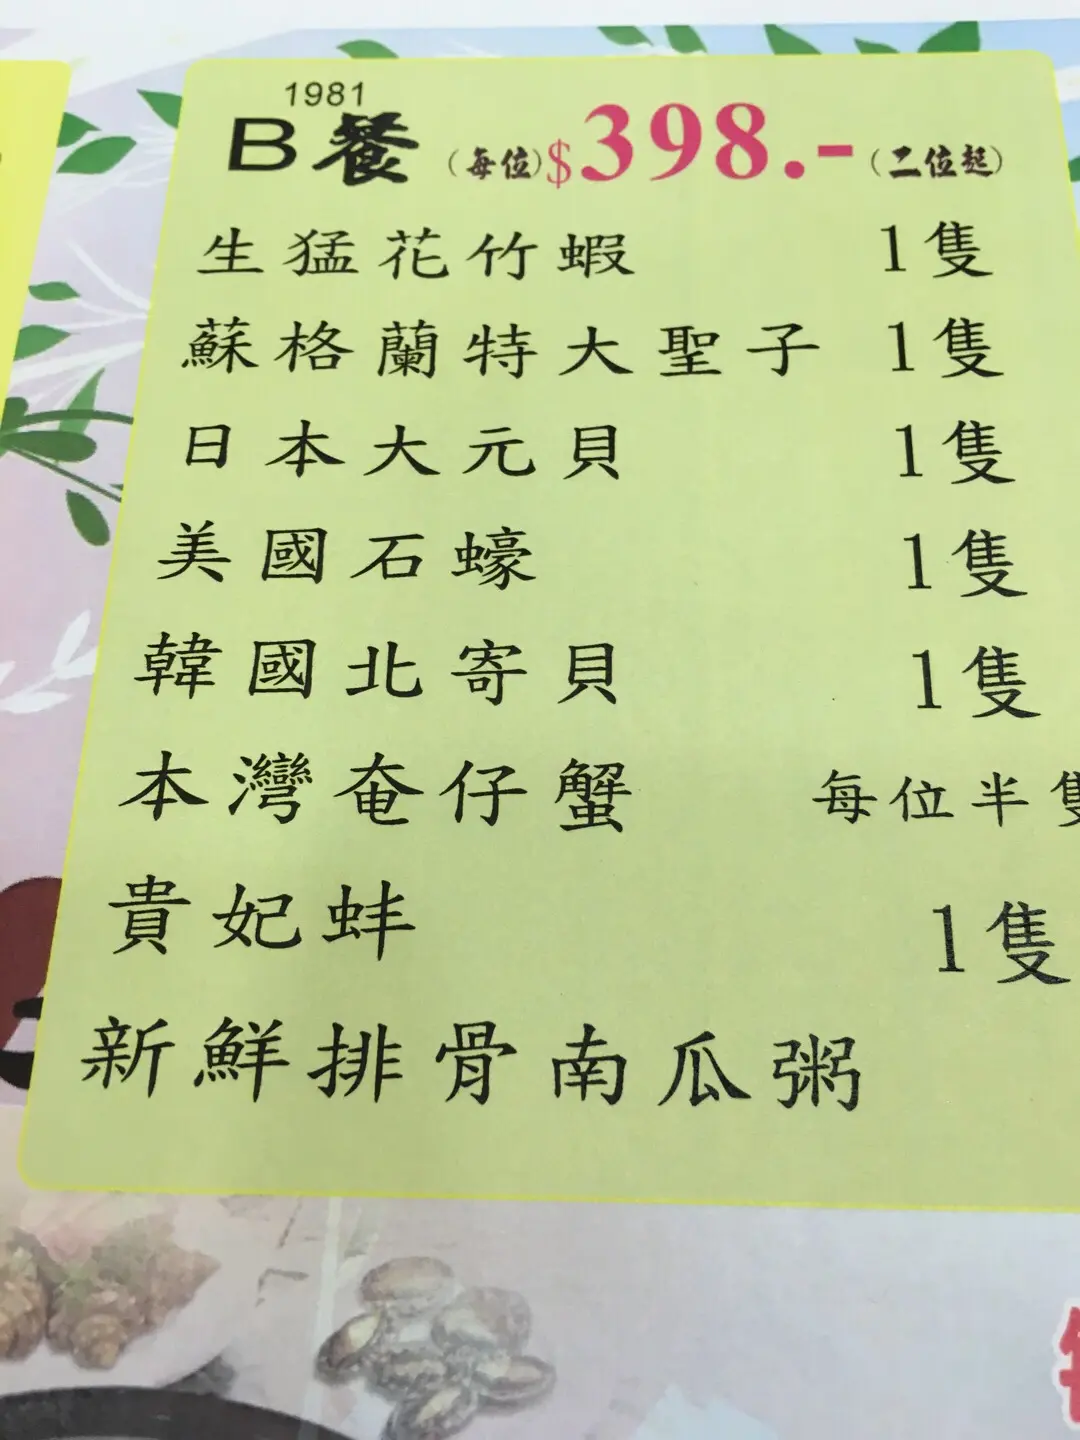 1981
B餐 (每位)$398.-(二位起)
生猛花竹蝦 1隻
蘇格蘭特大聖子 1隻
日本大元貝 1隻
美國石蠔 1隻
韓國北寄貝 1隻
本灣奄仔蟹 每位半隻
貴妃蚌 1隻
新鮮排骨南瓜粥